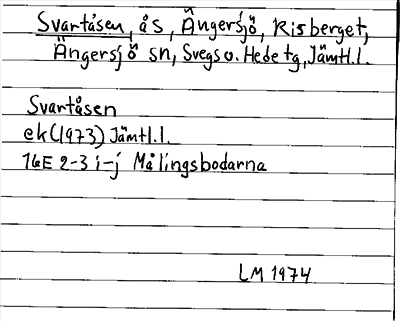 Svartåsen, ås, Ängersjö, Risberget,
Ängersjö sn, Svegs o. Hede tg, Jämtl.l.
Svartåsen
ek (1973) Jämtl.l.
16E 2-3 i-j Målingsbodarna
LM 1974